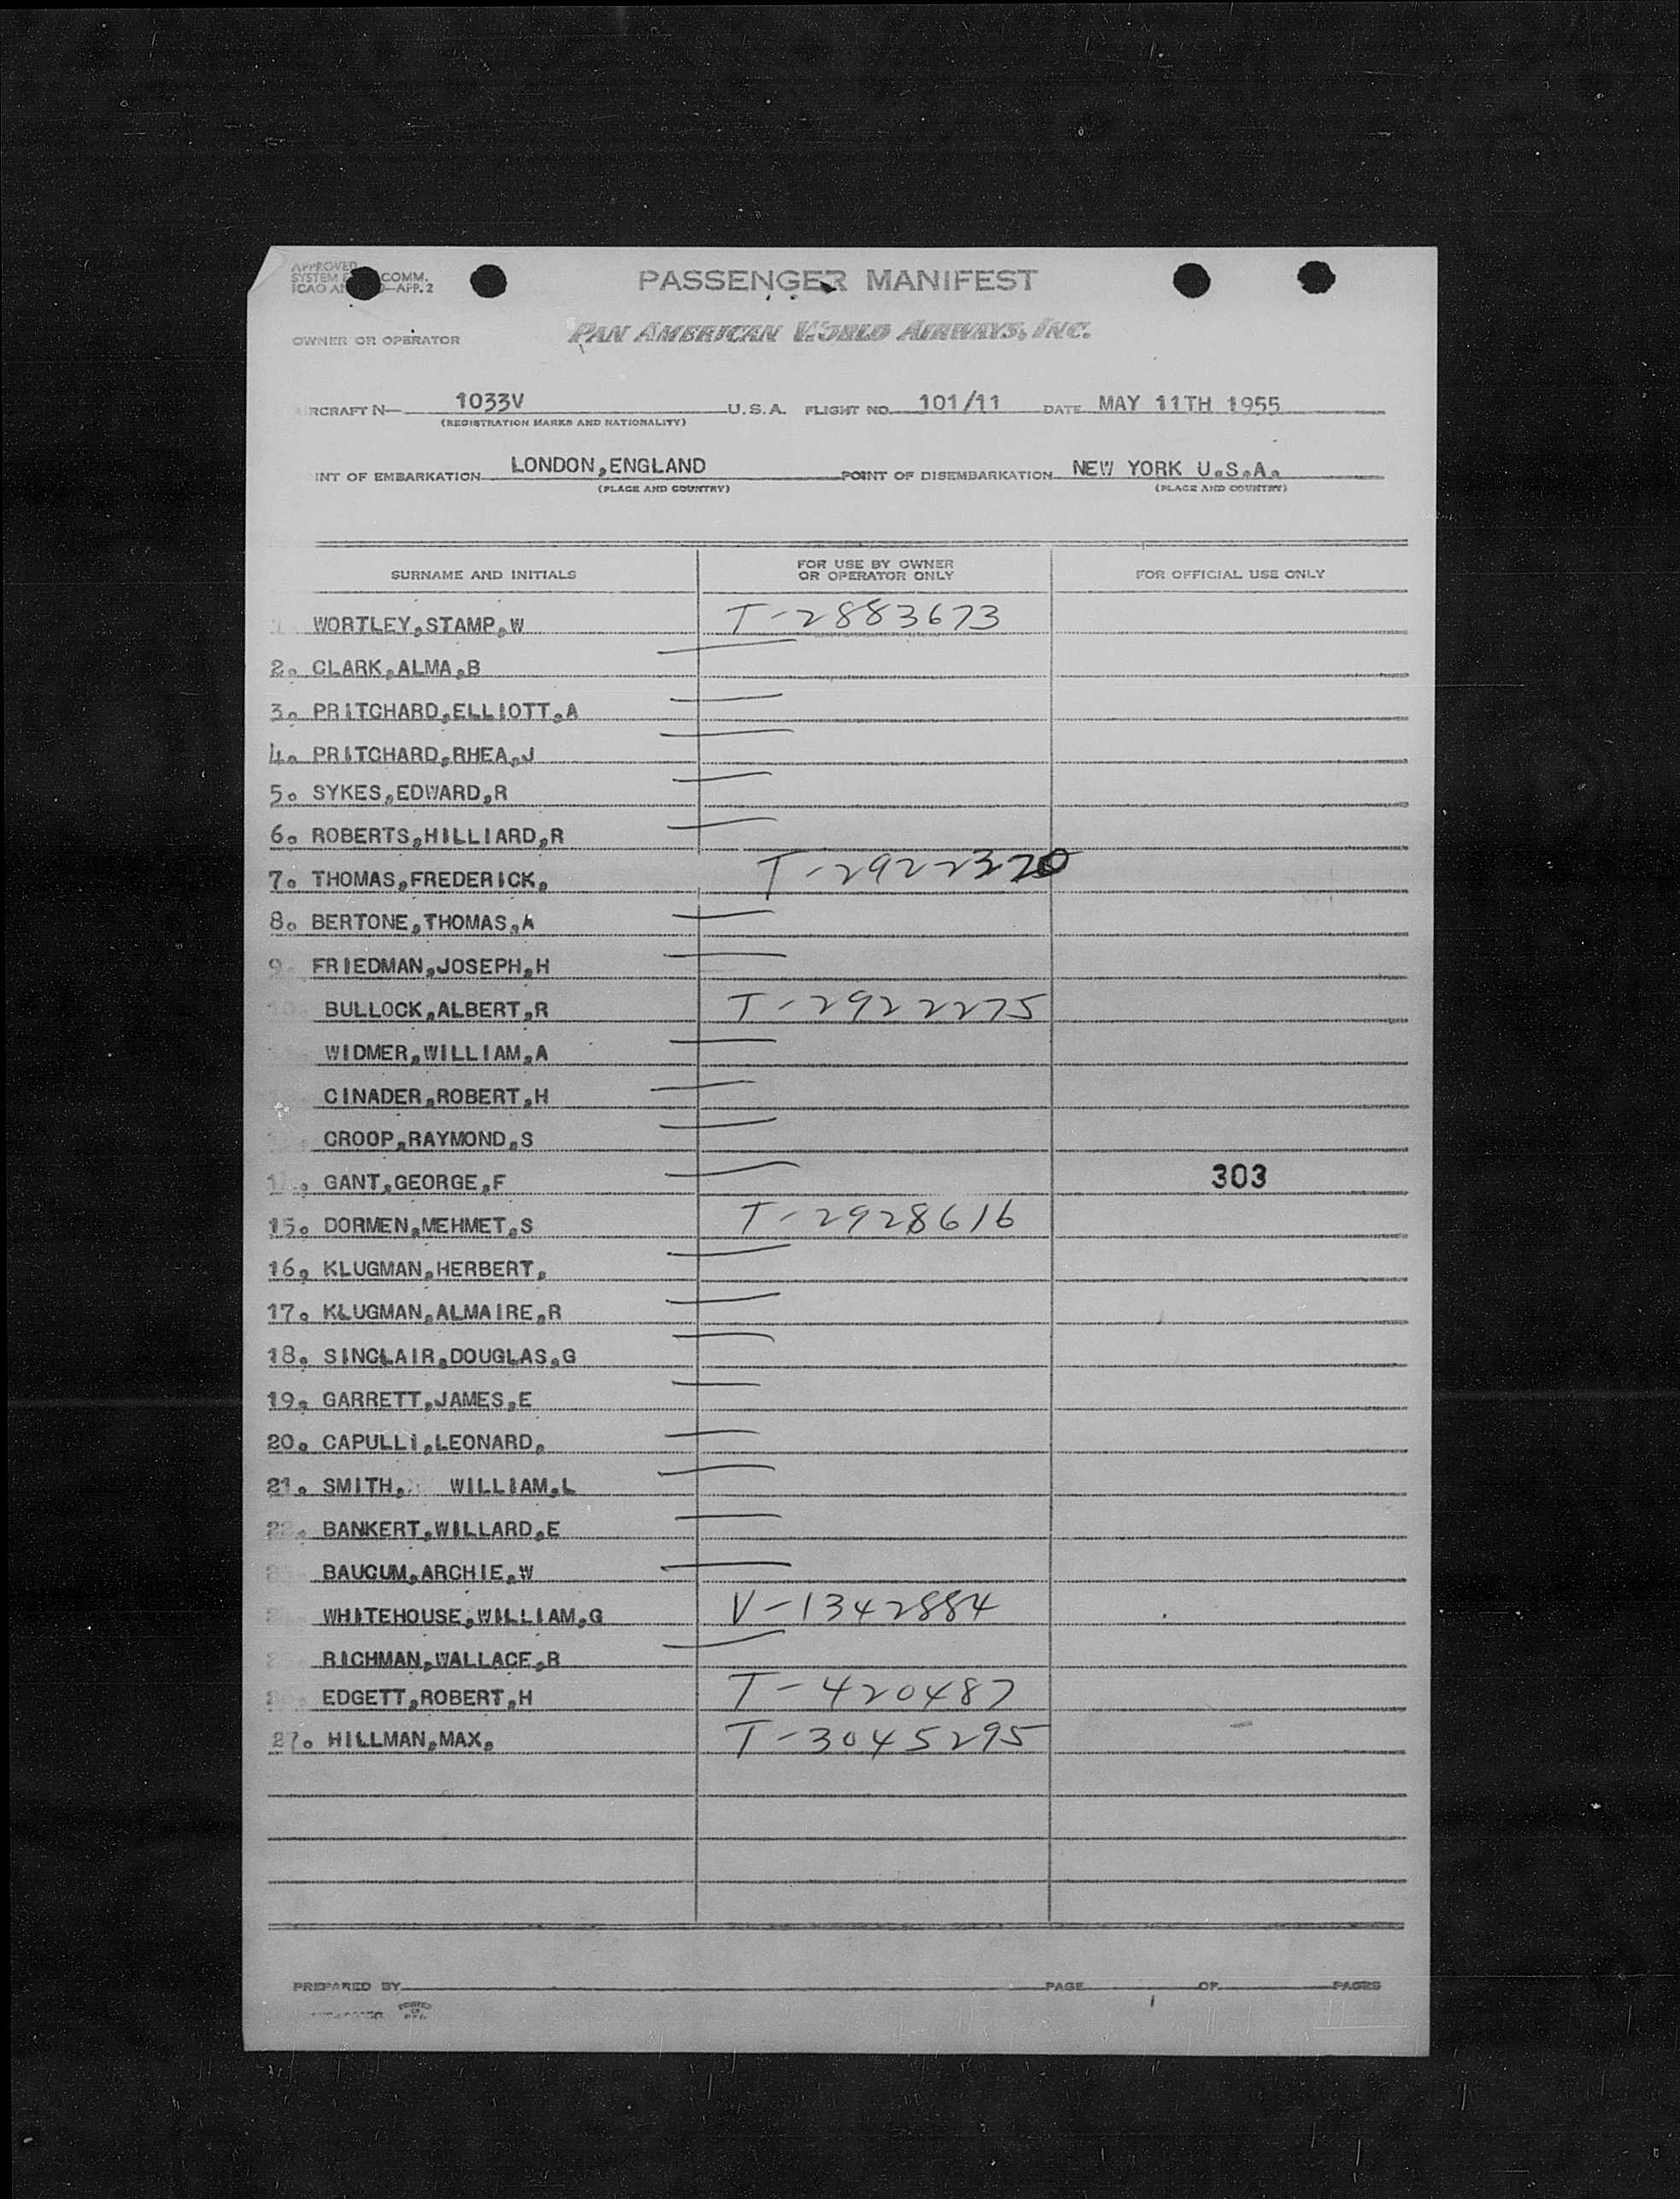 APPROVED
SYSTEM COMM.
ICAO —APP. 2
PASSENGER MANIFEST
OWNER OR OPERATOR PAN AMERICAN WORLD AIRWAYS, INC.
RCRAFT N— 1033V U.S.A. FLIGHT NO. 101/11 DATE MAY 11TH 1955
(REGISTRATION MARKS AND NATIONALITY)
INT OF EMBARKATION LONDON,ENGLAND POINT OF DISEMBARKATION NEW YORK U.S.A.
(PLACE AND COUNTRY) (PLACE AND COUNTRY)
SURNAME AND INITIALS FOR USE BY OWNER OR OPERATOR ONLY FOR OFFICIAL USE ONLY
WORTLEY,STAMP,W T-2883673
2. CLARK,ALMA,B
3. PRITCHARD,ELLIOTT,A
4. PRITCHARD,RHEA,J
5. SYKES,EDWARD,R
6. ROBERTS,HILLIARD,R
7. THOMAS,FREDERICK, T-2922320
8. BERTONE,THOMAS,A
9. FRIEDMAN,JOSEPH,H
BULLOCK,ALBERT,R T-2922275
WIDMER,WILLIAM,A
CINADER,ROBERT,H
CROOP,RAYMOND,S
GANT,GEORGE,F 303
15. DORMEN,MEHMET,S T-2928616
16, KLUGMAN,HERBERT,
17. KLUGMAN,ALMAIRE,R
18. SINCLAIR,DOUGLAS,G
19. GARRETT,JAMES,E
20. CAPULLI,LEONARD,
21. SMITH, WILLIAM,L
22. BANKERT,WILLARD,E
BAUCUM,ARCHIE,W
WHITEHOUSE,WILLIAM,G V-1342884
RICHMAN,WALLACE,R
EDGETT,ROBERT,H T-420487
27. HILLMAN,MAX, T-3045295
PREPARED BY PAGE OF PAGES